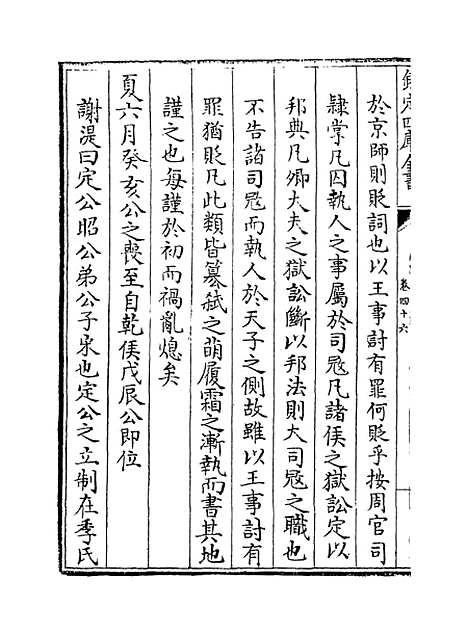 欽定四庫全書
卷四十六
於京師則貶詞也以王事討有罪何貶乎按周官司
隸掌凡囚執人之事屬於司冦凡諸侯之獄訟定以
邦典凡卿大夫之獄訟斷以邦法則大司冦之職也
不告諸司冦而執人於天子之側故雖以王事討有
罪猶貶凡此類皆篡弑之萌履霜之漸執而書其地
謹之也每謹於初而禍亂熄矣
夏六月癸亥公之喪至自乾侯戊辰公即位
謝湜曰定公昭公弟公子宋也定公之立制在季氏